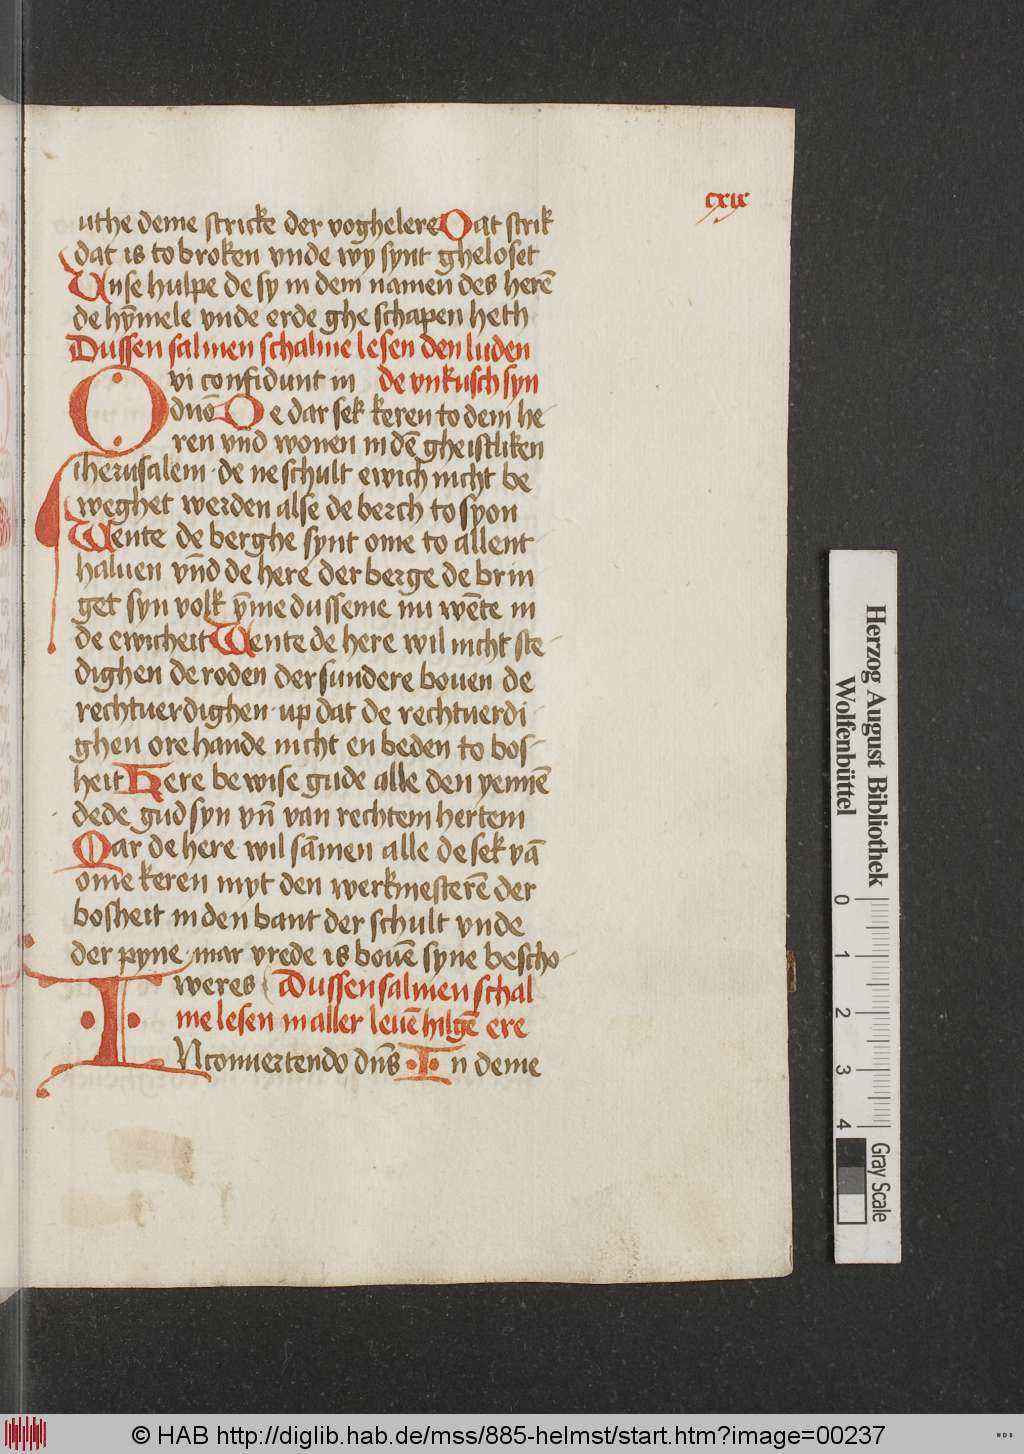 cxix
uthe deme stricke der voghelere Dat strik
dat is to broken vnde wy synt gheloset
Vnse hulpe de sy in dem namen des herē
de hȳmele vnde erde ghe schapen heth
Dussen salmen schalme lesen den luden
Qvi confidunt in de vnkusch syn
dnō De dar sek keren to dem he-
ren vnd wonen in dē gheistliken
iherusalem · de ne schult ewich nicht be
weghet werden alse de berch to syon
Wente de berghe synt ome to allent
haluen vn̄d de here der berge de brin
get syn volk v̄me dusseme nu wēte in
de ewicheit Wente de here wil nicht ste-
dighen de roden der sundere bouen de
rechtuerdighen · up dat de rechtuerdi
ghen ore hande nicht en beden to bos-
heit Here bewise gude alle den yennē
de de gud syn vn̄ van rechtem hertem
Mar de here wil sām̄en alle de sek vā
ome keren myt den werkmesterē der
bosheit in den bant der schult vnde
der pyne · mar vrede is bouē syne bescho-
weres Dussen salmen schal
me lesen in aller leuē hilgē ere
IN conuertendo dn̄s · In deme
Herzog August Bibliothek
Wolfenbüttel
0 1 2 3 4
Gray Scale
© HAB http://diglib.hab.de/mss/885-helmst/start.htm?image=00237
WDB